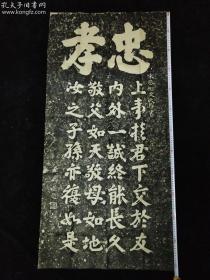 忠孝
上事於君下交於友
内外一誠終能長久
敬父如天敬母如地
汝之子孫亦復如是
孔夫子旧书网